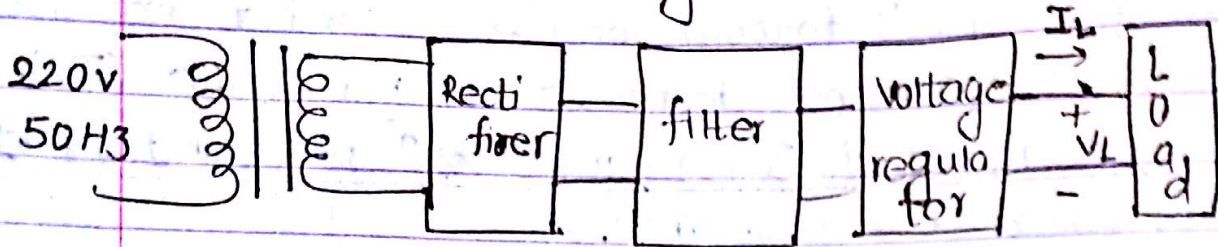 220V
50H3
Recti
firer
filter
Voltage
regula
for
IL
+
VL
-
L
O
a
d